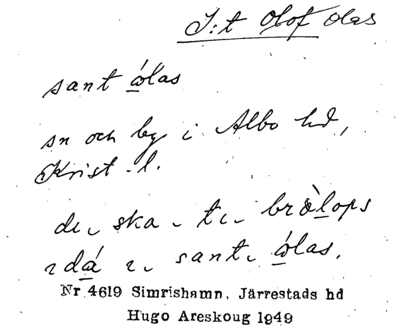 S:t Olof Olas
sant ólas
sn och by i Albo hd,
Krist. l.
de ska te bròlops
dá sant ólas.
Nr 4619 Simrishamn, Järrestads hd
Hugo Areskoug 1949